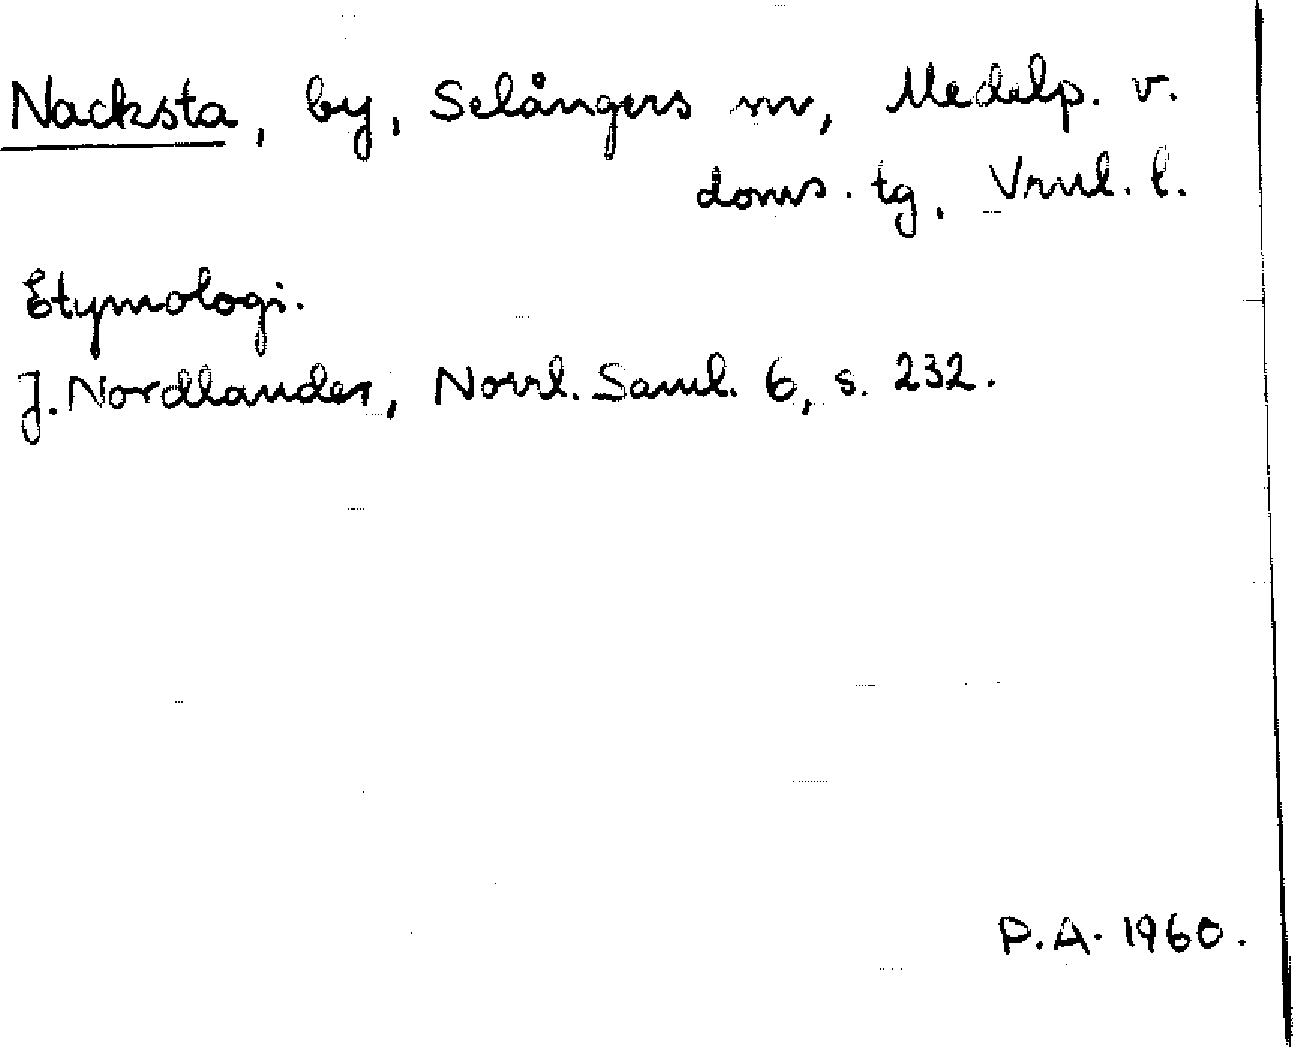 Nacksta, by, Selångers sn, Medelp. v.
doms. tg, Vrnl. l.
Etymologi.
J. Nordlander, Norrl. Saml. 6, s. 232.
P.A. 1960.